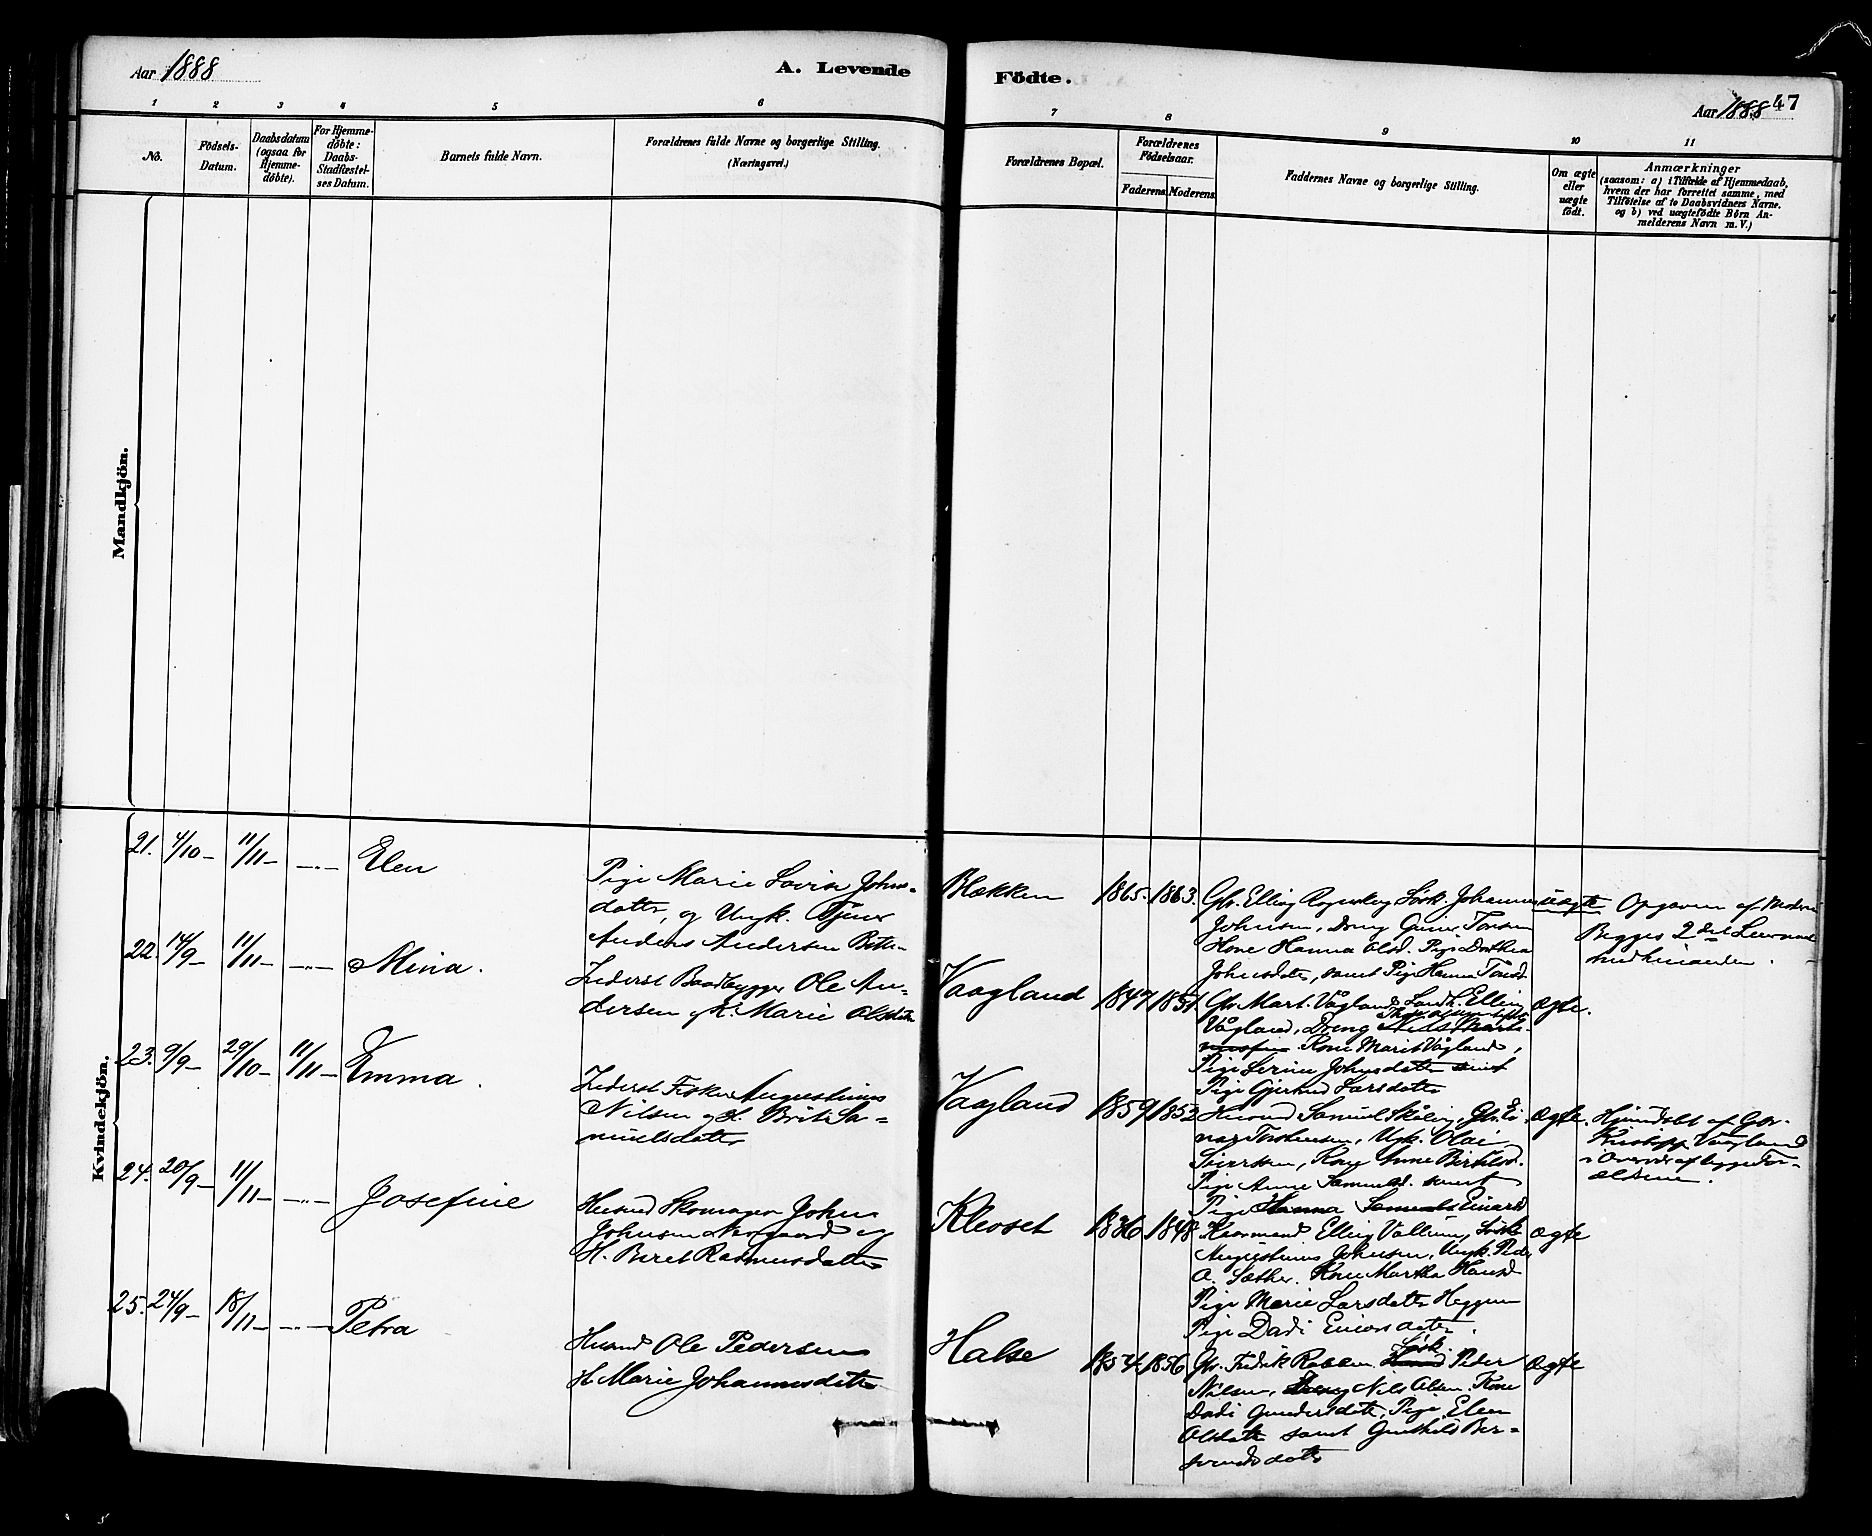 Aar 1888
A. Levende
Födte.
Aar 1888 47
1 2 3 4 5 6
7 8 9 10 11
No.
Födsels-
Datum.
Daabsdatum
(ogsaa for
Hjemme-
døbte).
For Hjemme-
døbte:
Daabs-
Stadfæstel-
ses Datum.
Barnets fulde Navn.
Forældrenes fulde Navne og borgerlige Stilling.
(Næringsvei.)
Forældrenes Bopæl.
Forældrenes
Födselsaar.
Faderens Moderens
Faddernes Navne og borgerlige Stilling.
Om ægte
eller
uægte
født.
Anmærkninger
(saasom: a) i Tilfælde af Hjemmedaab,
hvem der har forrettet samme, med
Tilføielse af to Daabsvidners Navne.
og b) ved uægtefödte Børn An-
melderens Navn m. V.)
Mandkjön.
Kvindekjön.
21. 4/10 – 11/11 – –„– Elen
Pige Marie Lovise Johns-
datter, og Ungk. Tjener
Anders Andersen
Blekken 1865. 1863.
Gbr. Elling Johannes
Johnsen, Dreng Torsen
Kone Hanna Olsd. Pige Dorthea
Johnsdatter, samt Pige Hanna
uægte
Opgaven af Moderen
Begges 2det Leiermaal
22. 14/9 – 11/11 – –„– Mina.
Inderst Baadbygger Ole An-
dersen og K. Marie Olsdatter
Vaagland 1847 1851.
Gbr. Mart. Vågland, Elling
Vågland, Dreng
Kone Marit Vågland,
Pige Serine Johnsdatter samt
Pige Gjertrud Larsdatter
Ægte.
23. 9/9 – 29/10 – 11/11 – Emma.
Inderst Fisker Augustinus
Nilsen og H. Brit Sa-
muelsdatter
Vaagland 1859 1853
Husmd Samuel Gbr. Ei-
nar Torstensen, Ungk. Olae
Siversen, Kone Anne
Pige Anne samt
Pige Hanna
Ægte.
Hjemdøbt af Gbr.
Kristoff Vaagland
i Overvær af begge For-
ældrene.
24. 20/9 – 11/11 – –„– Josefine
Husmd Skomager John
Johnsen og
H. Beret Rasmusdatter
Klevset 1836 1848
Elling Valsum,
Augustinus Johnsen, Ungk. Peder
A. Sæther. Kone Martha Hansd
Pige Marie Larsdatter Heggem
Pige Dadi
Ægte
25. 24/9 – 18/11 – –„– Petra
Husmd Ole Pedersen
H. Marie Johannesdatter
Halse 1854 1856
Gbr. Fredrik Rakken Peder
Nilsen, Nils Olsen. Kone
Dadi Gundersdatter, Pige Elen
Olsdatter samt Gunhild Ber-
svendsdatter
Ægte